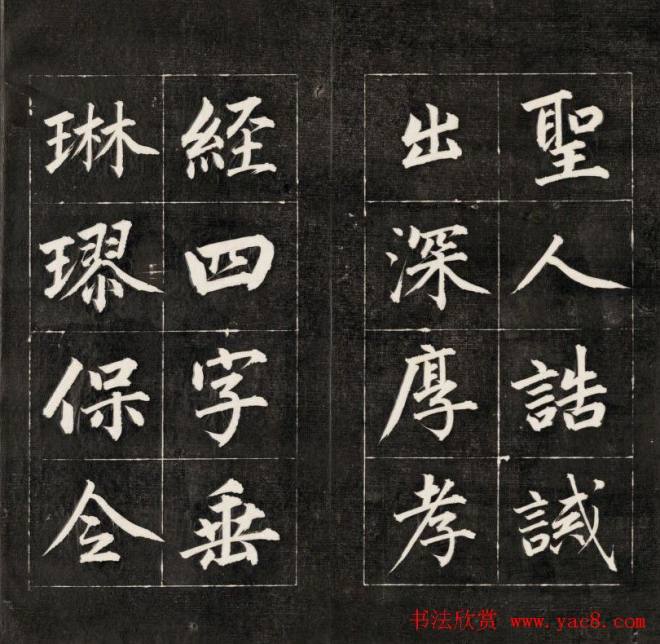 聖人誥誡
出深厚孝
經四字垂
琳璆保令
书法欣赏 www.yac8.com